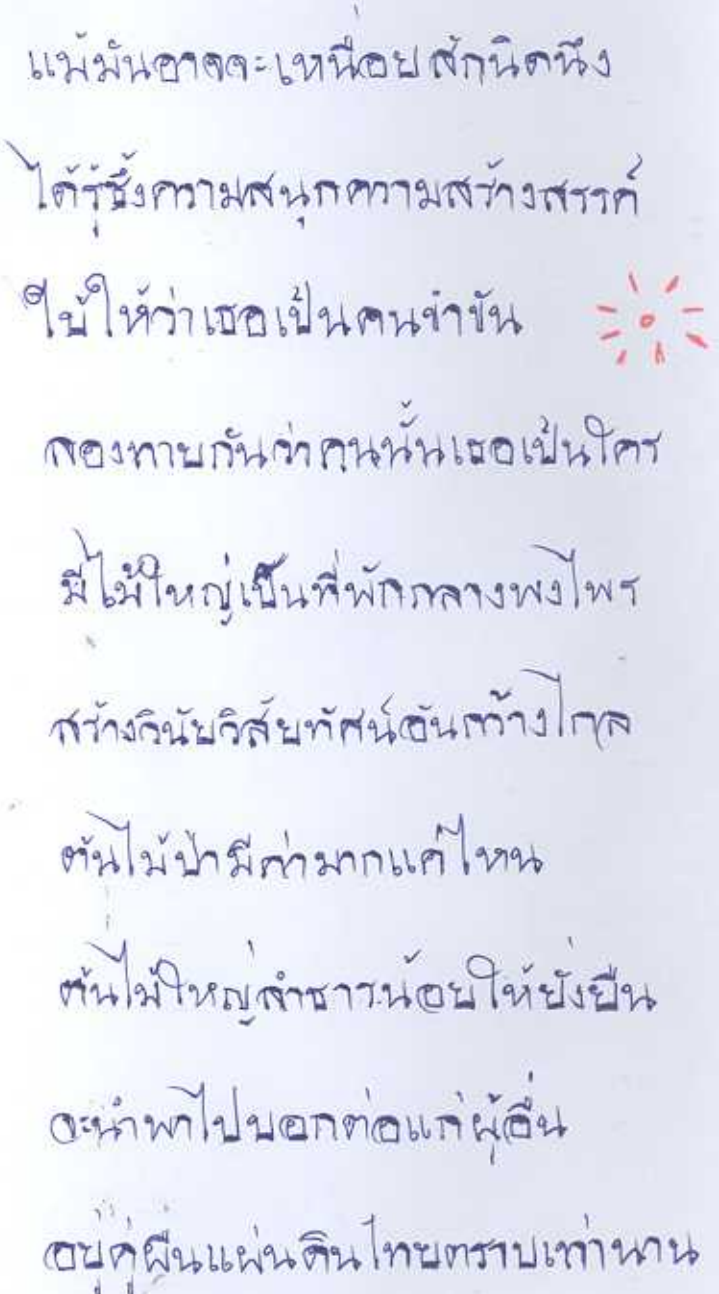 แม้มันอาจจะเหนื่อยสักนิดนึง
ได้รู้ซึ้งความสนุกความสร้างสรรค์
ใบ้ให้ว่าเธอเป็นคนขำขัน
ลองทายกันว่าคนนั้นเธอเป็นใคร
มีไม้ใหญ่เป็นที่พักกลางพงไพร
สร้างวินัยวิสัยทัศน์อันกว้างไกล
ต้นไม้ป่ามีค่ามากแค่ไหน
ต้นไม้ใหญ่ลำธารน้อยให้ยั่งยืน
จะนำพาไปบอกต่อแก่ผู้อื่น
อยู่คู่ผืนแผ่นดินไทยตราบเท่านาน